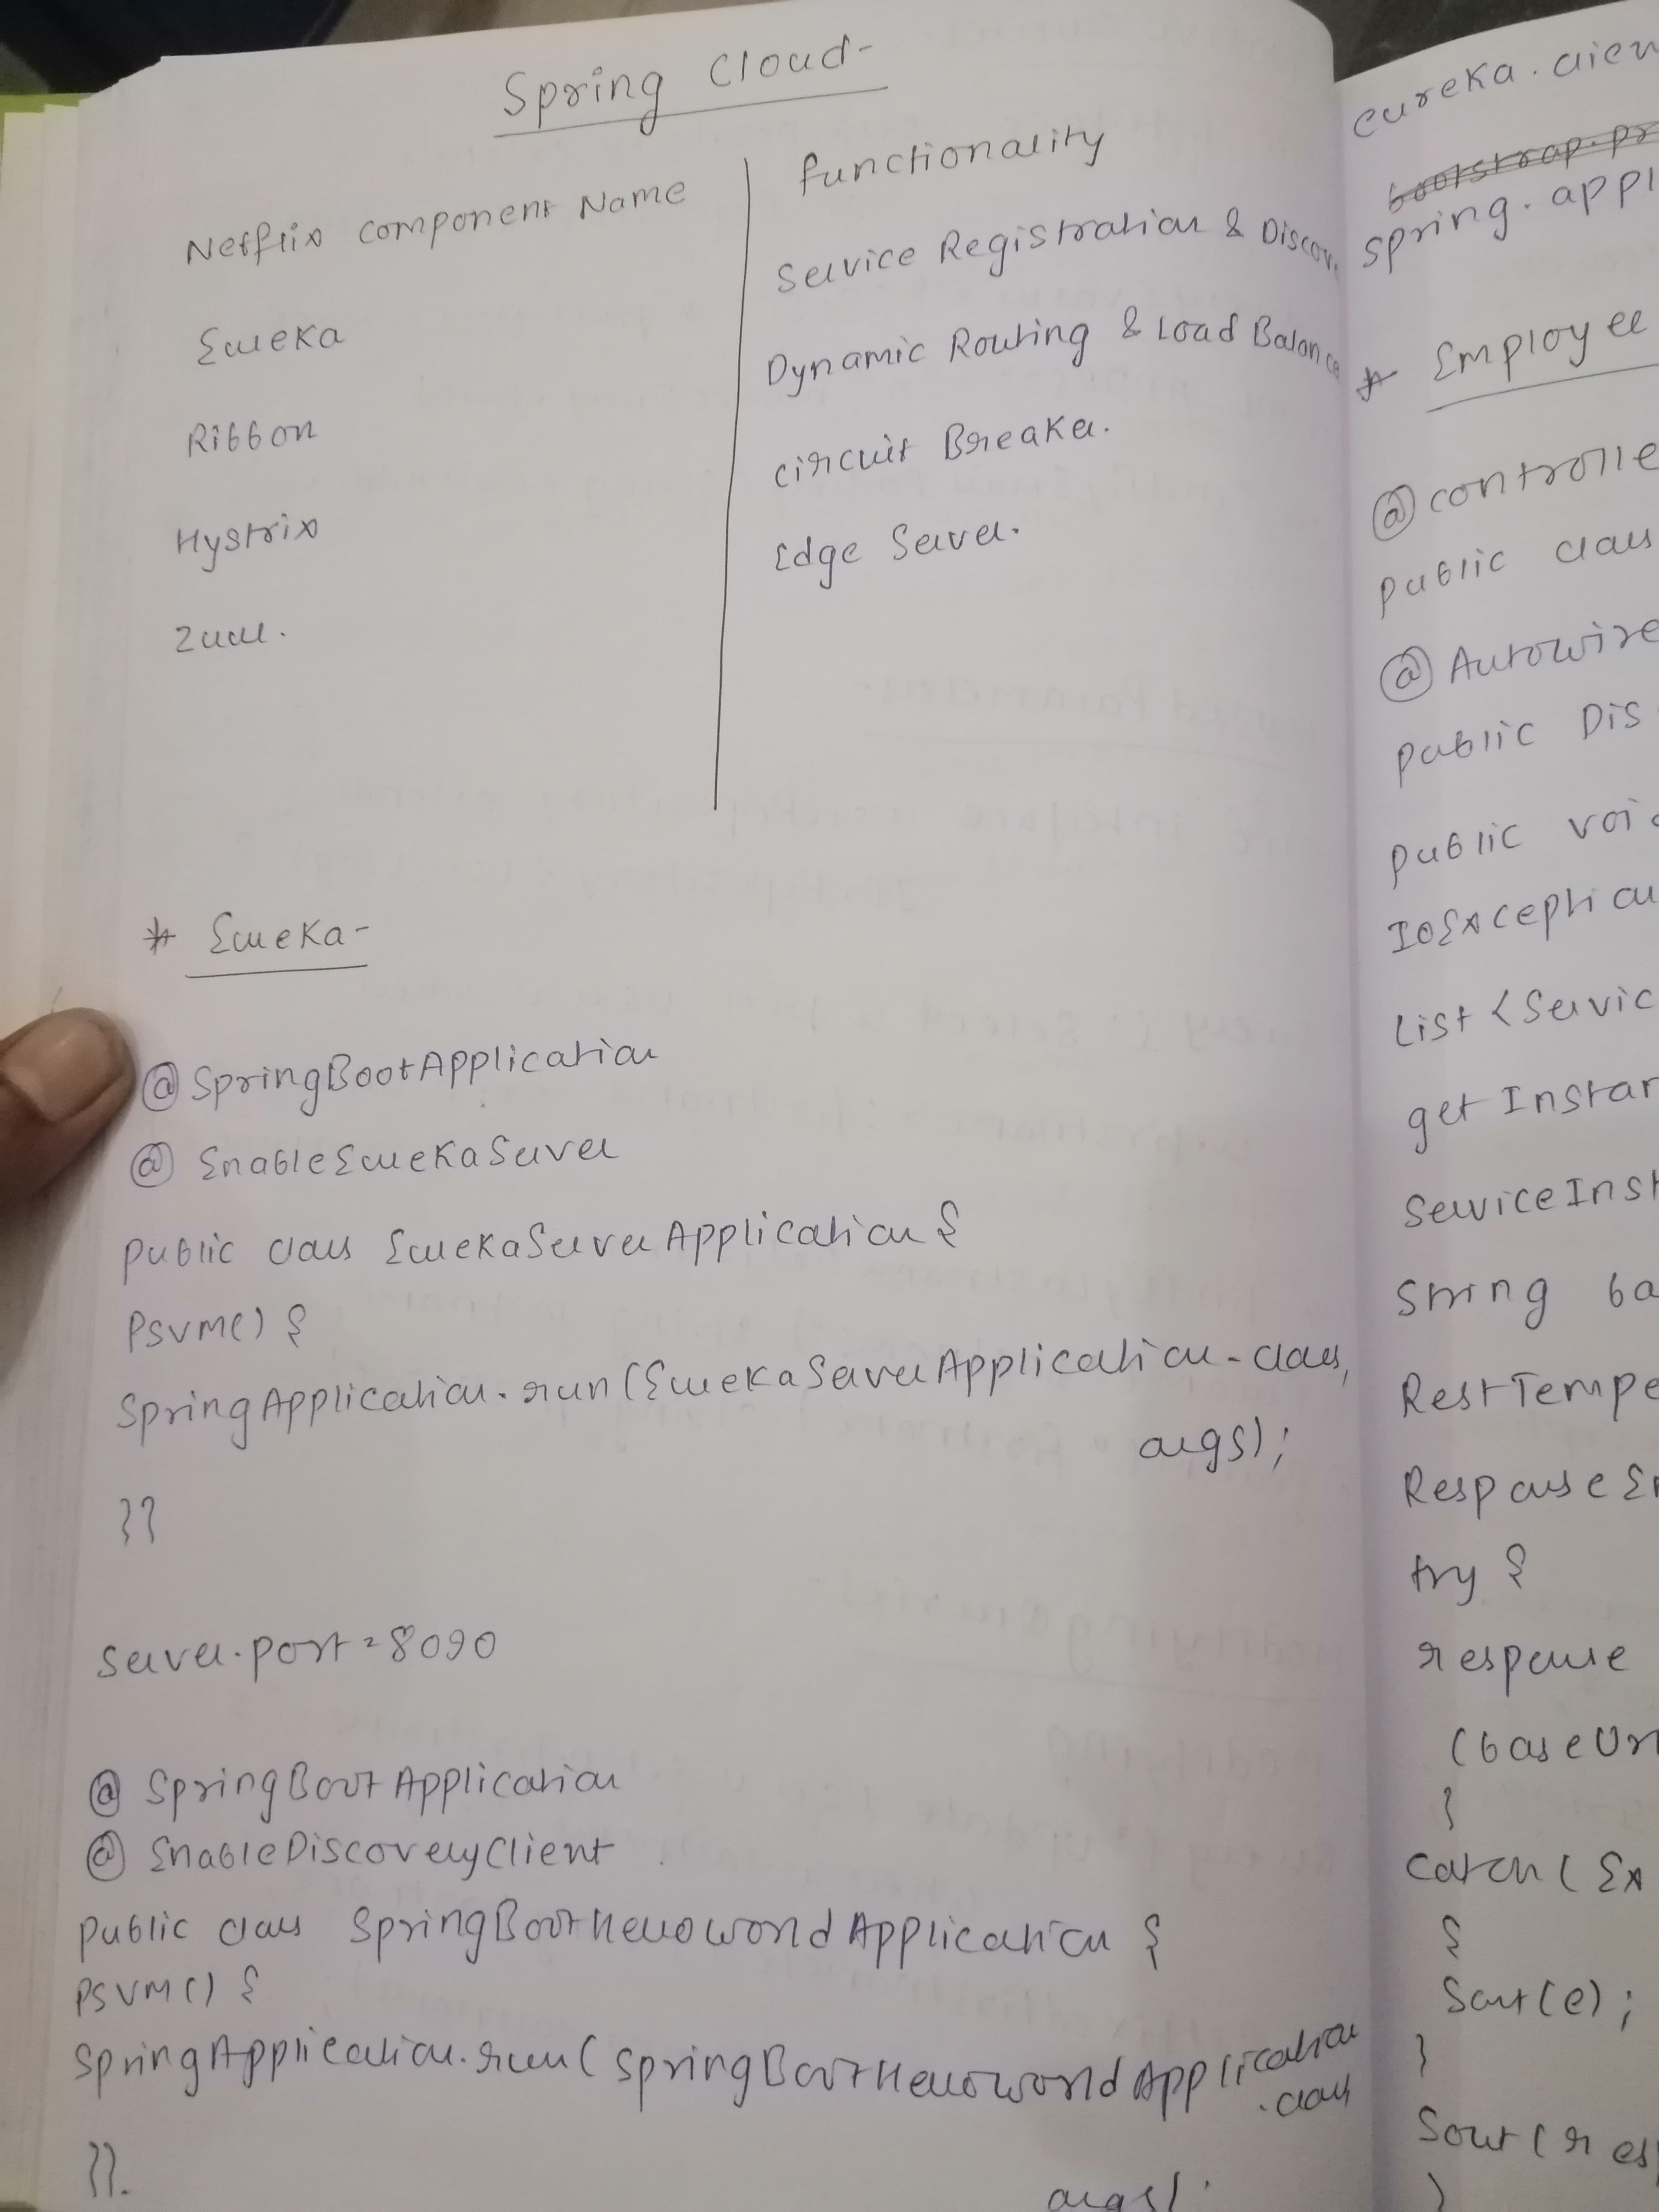 Spring Cloud-
Netflix Component Name
Functionality
Eureka
Service Registration & Discov
Ribbon
Dynamic Routing & Load Balance
Hystrix
Circuit Breaker.
Zuul.
Edge Server.
* Eureka-
@SpringBootApplication
@EnableEurekaServer
public class EurekaServerApplication {
PSVM() {
SpringApplication.run(EurekaServerApplication.class,
args);
}}
server.port=8090
@SpringBootApplication
@EnableDiscoveryClient
public class SpringBootHelloWorldApplication {
PSVM() {
SpringApplication.run(SpringBootHelloWorldApplication
.class
args);
}}.
eureka.clien
bootstrap.pr
spring.appl
* Employee
@Controlle
public class
@Autowire
public Dis
public voi
IOException
List<Servic
getInstan
ServiceInst
String ba
RestTempe
ResponseEn
try {
response
(baseUr
}
catch(Ex
{
Sout(e);
}
Sout(res
}